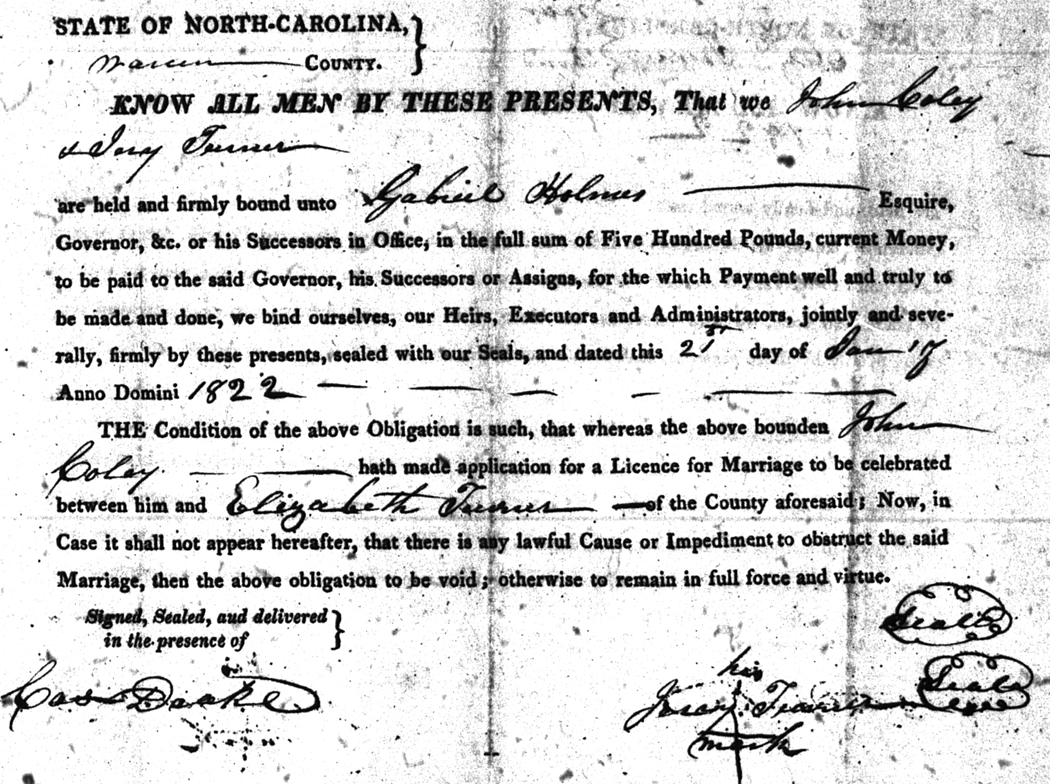 STATE OF NORTH-CAROLINA,
Warren COUNTY.
KNOW ALL MEN BY THESE PRESENTS, That we John Coley
& Turner
are held and firmly bound unto Gabriel Holmes Esquire,
Governor, &c. or his Successors in Office, in the full sum of Five Hundred Pounds, current Money,
to be paid to the said Governor, his Successors or Assigns, for the which Payment well and truly to
be made and done, we bind ourselves, our Heirs, Executors and Administrators, jointly and seve-
rally, firmly by these presents, sealed with our Seals, and dated this day of
Anno Domini 1822
THE Condition of the above Obligation is such, that whereas the above bounden John
Coley hath made application for a Licence for Marriage to be celebrated
between him and Elizabeth Turner of the County aforesaid; Now, in
Case it shall not appear hereafter, that there is any lawful Cause or Impediment to obstruct the said
Marriage, then the above obligation to be void; otherwise to remain in full force and virtue.
Signed, Sealed, and delivered
in the presence of
Cas Drake
his
Turner
mark